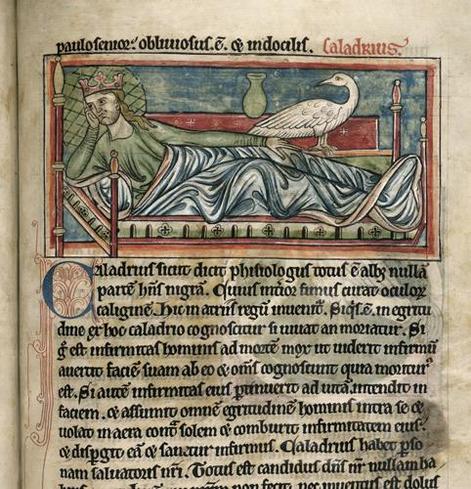 paulosenior: obliuiosus. ē. & indocilis. Caladrius.
Caladrius sicut dicit phisiologus totus ē albꝰ nullā
partē hn̄s nigrā. Cuius fimus curat oculoꝝ
caliginē. Hic in atriis regū inuenit᷑. Siqͥs. ē. in egritu
dine ex hoc caladrio cognoscitur si uiuat an moriatur. Si
g̊ est infirmitas hominis ad mortē mox ut uiderit infirmū
auertit faciē suam ab eo & om̄s cognoscunt quia moriturꝰ
est. Si autē infirmitas eius ꝑtinuerit ad uitā. intendit in
faciem. & assumit omnē egritudinē hominis intra se &
uolat in aera contᷓ solem & comburit infirmitatem eius.
& disꝑgit eā & sanatur infirmus. Caladrius habet ꝑso
nam saluatoris nr̄i. Totus est candidus dn̄s nr̄ nullam ha
non fecit, nec inuentus est dolus